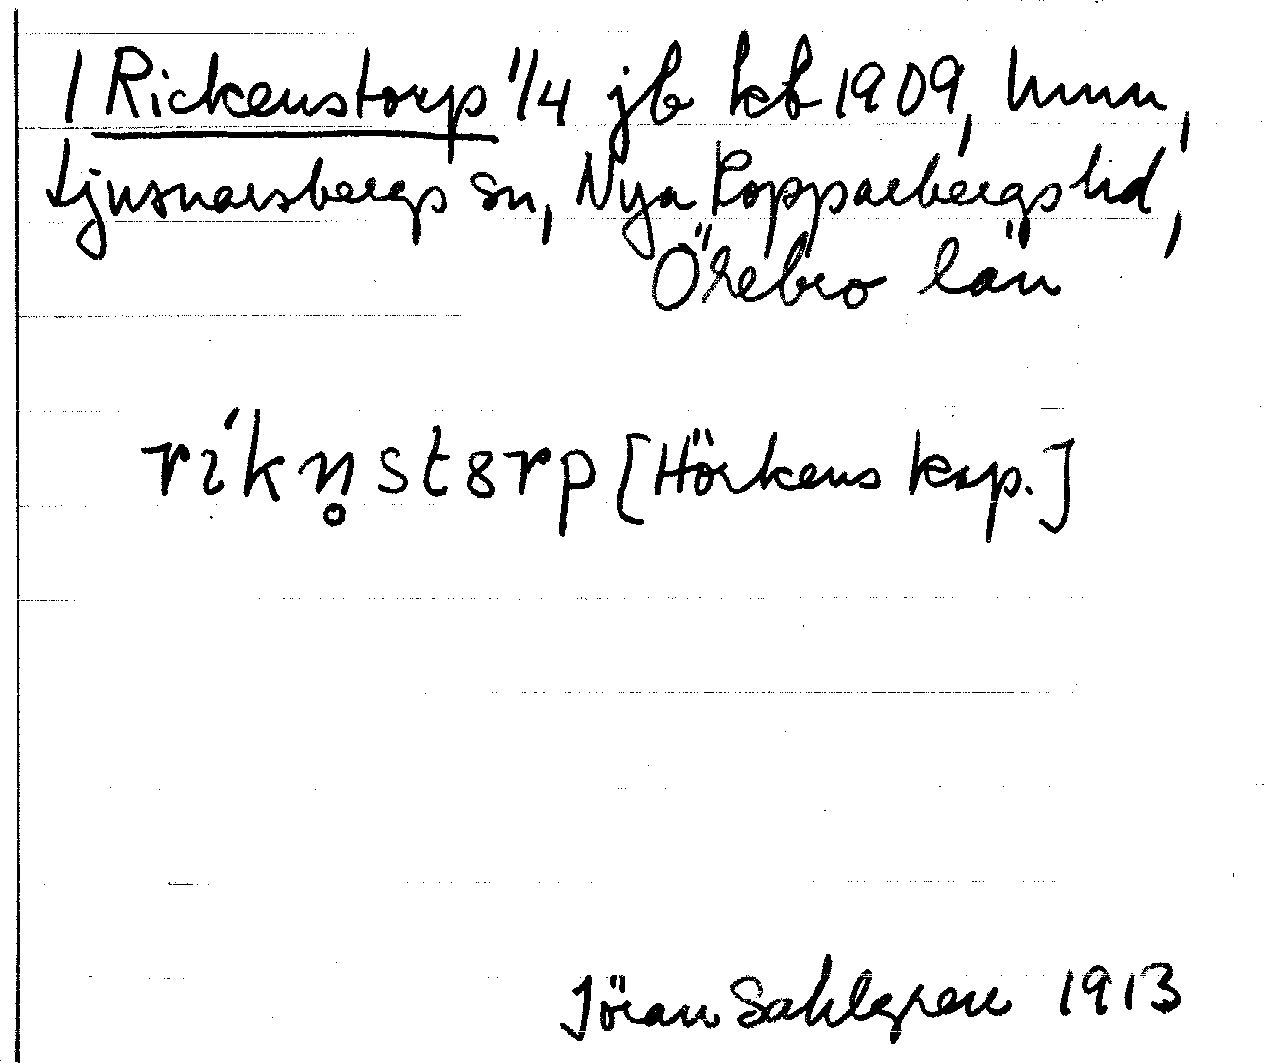 1 Rickenstorp 1/4 jb kb 1909, hmn,
Ljusnarsbergs sn, Nya Kopparbergs hd,
Örebro län
ríkn̥storp [Hörkens kap.]
Jöran Sahlgren 1913